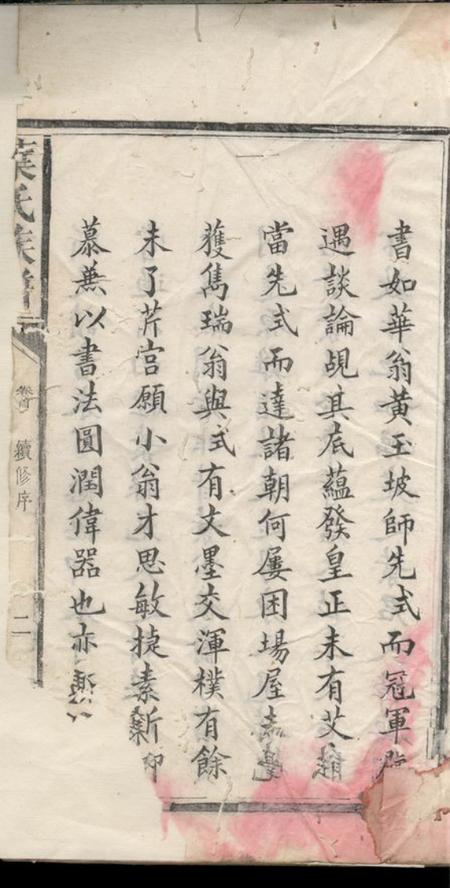 書如華翁黃玉坡師先式而冠軍
遇談論覘其底蘊發皇正未有艾
當先式而達諸朝何屢困場屋
獲雋瑞翁與式有文墨交渾樸有餘
未了芹宮願小翁才思敏捷素
慕兼以書法圓潤偉器也亦
葉氏族譜
卷首 續修序 二